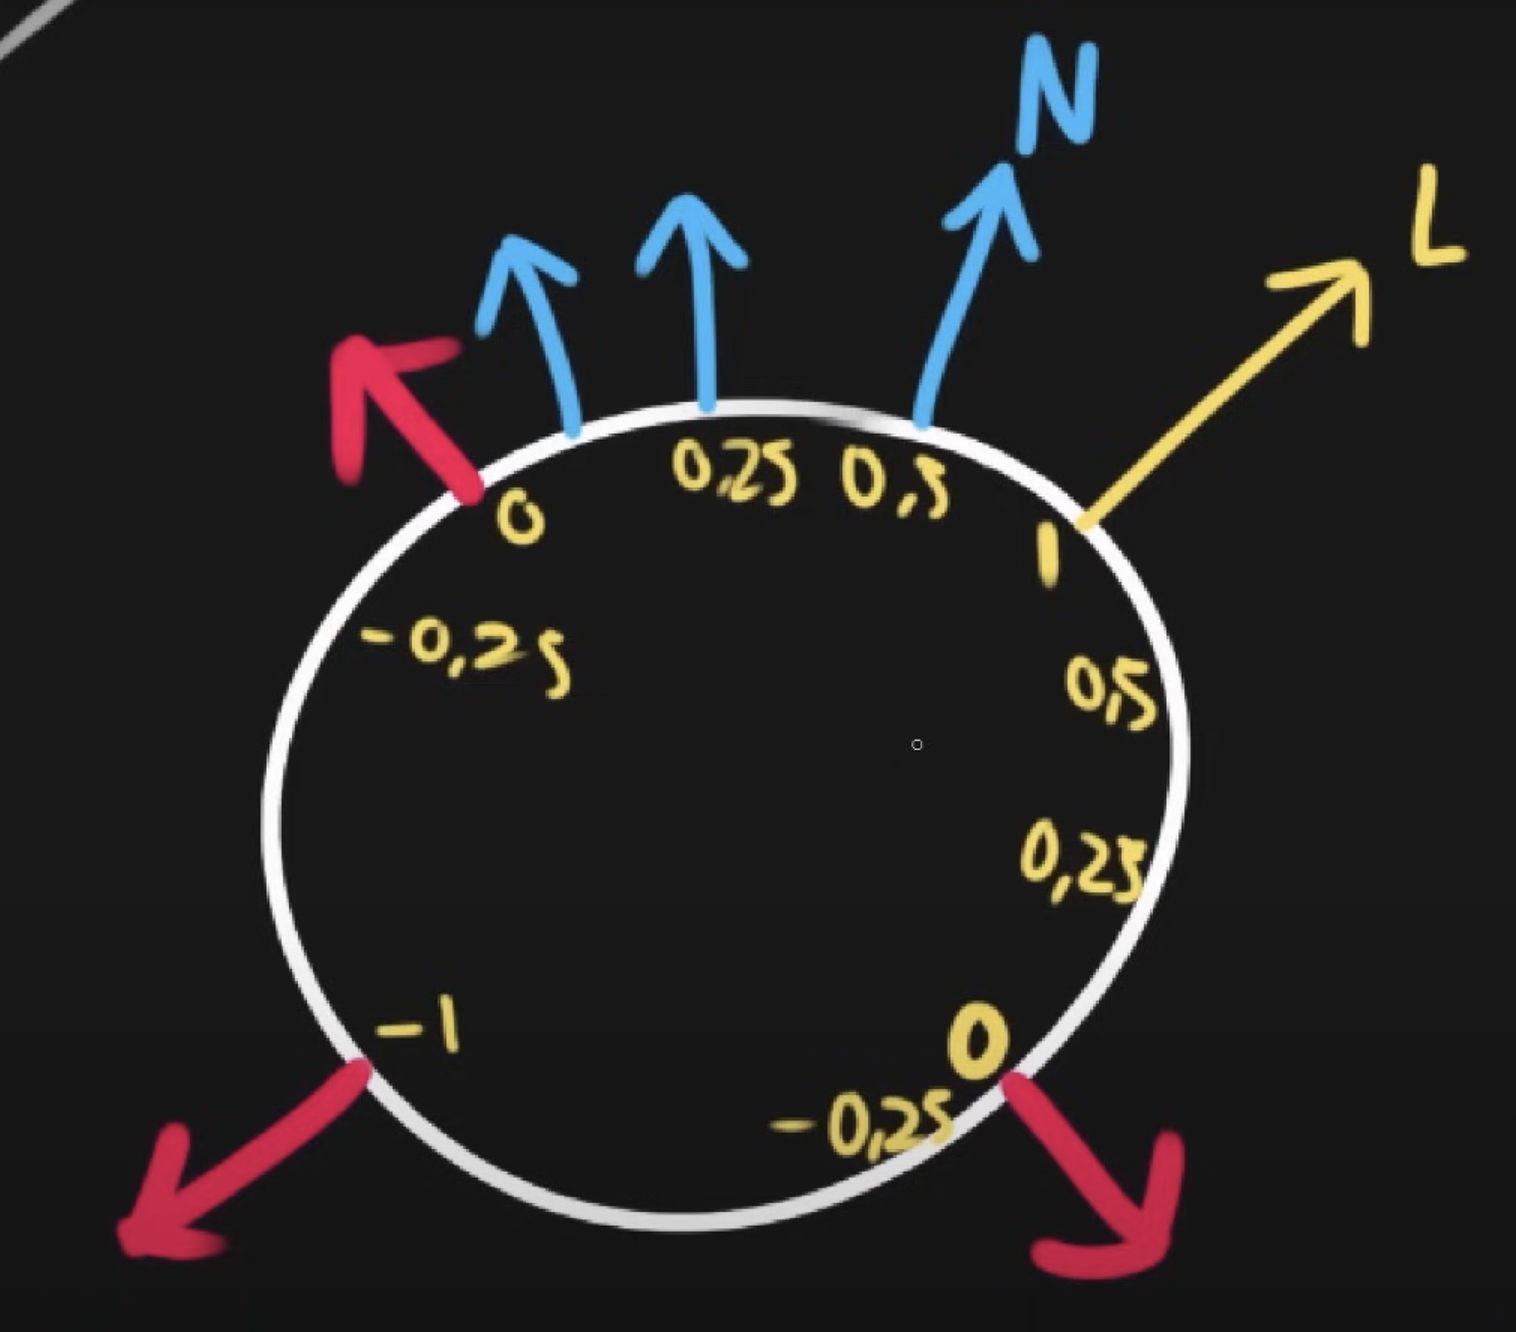 N
L
0,25 0,5
0
1
-0,25
0,5
0,25
-1
0
-0,25